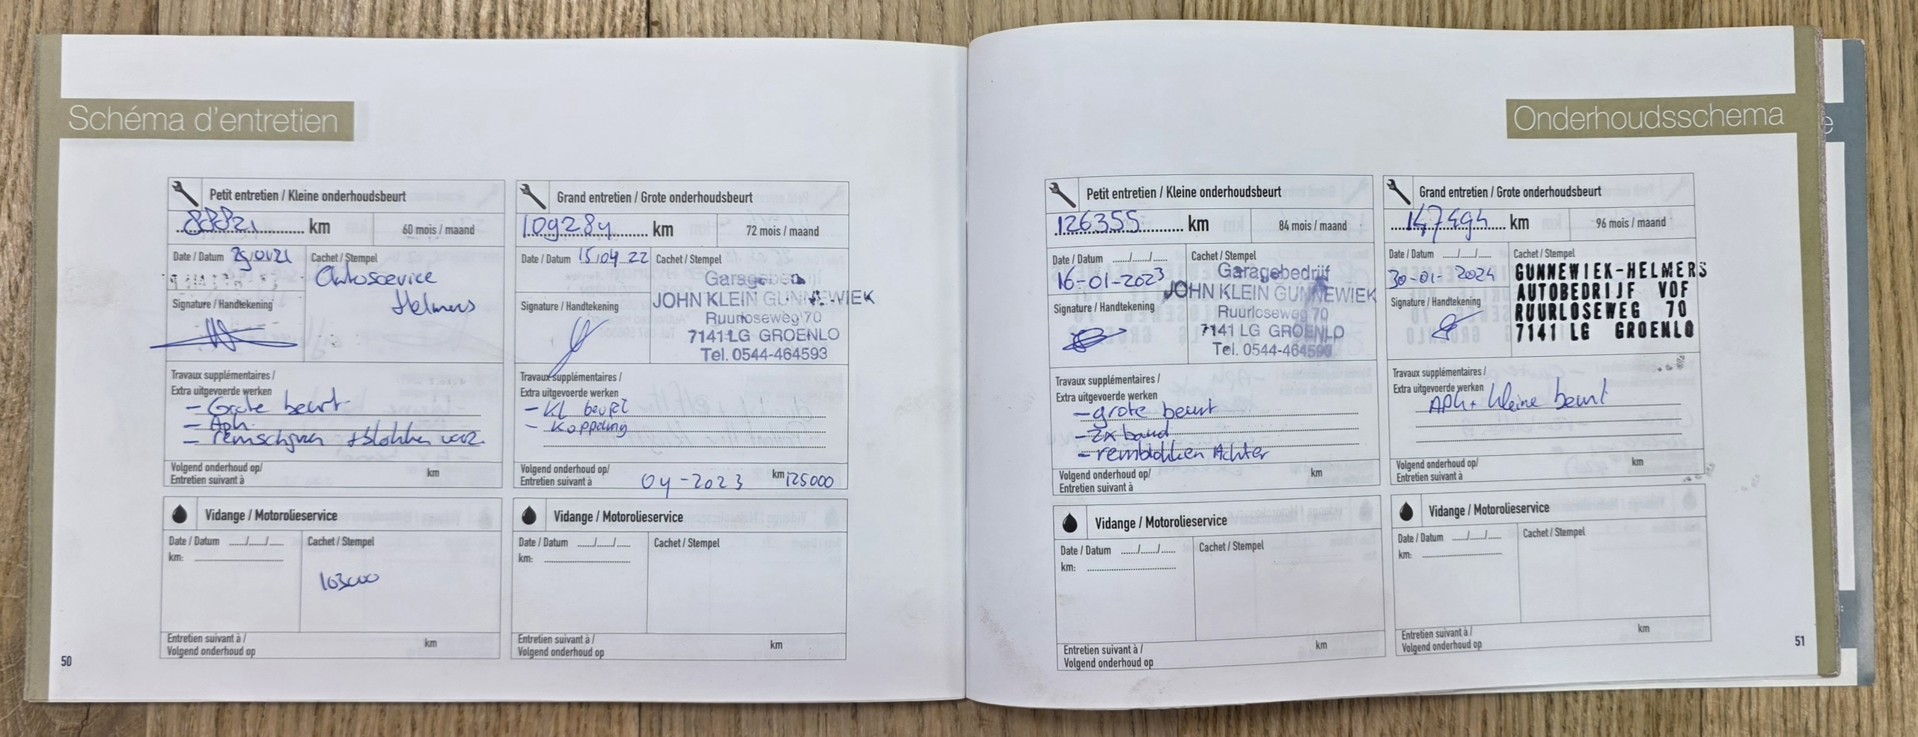 Schéma d'entretien
Petit entretien / Kleine onderhoudsbeurt
88821 km
60 mois / maand
Date / Datum
Cachet / Stempel
Autoservice
Helmers
Signature / Handtekening
Travaux supplémentaires /
Extra uitgevoerde werken
- Grote beurt
- Aph
- remschijven + blokken voor.
Volgend onderhoud op/
Entretien suivant à
km
Vidange / Motorolieservice
Date / Datum .../.../...
Cachet / Stempel
km:
103000
Entretien suivant à /
Volgend onderhoud op
km
50
Grand entretien / Grote onderhoudsbeurt
109284 km
72 mois / maand
Date / Datum 15.04.22
Cachet / Stempel
Garagebedrijf
JOHN KLEIN GUNNEWIEK
Ruurloseweg 70
7141 LG GROENLO
Tel. 0544-464593
Signature / Handtekening
Travaux supplémentaires /
Extra uitgevoerde werken
- Kl beurt
- Koppeling
Volgend onderhoud op/
Entretien suivant à
04-2023
km 125000
Vidange / Motorolieservice
Date / Datum .../.../...
Cachet / Stempel
km:
Entretien suivant à /
Volgend onderhoud op
km
Onderhoudsschema
Petit entretien / Kleine onderhoudsbeurt
126355 km
84 mois / maand
Date / Datum .../.../...
16-01-2023
Cachet / Stempel
Garagebedrijf
JOHN KLEIN GUNNEWIEK
Ruurloseweg 70
7141 LG GROENLO
Tel. 0544-464593
Signature / Handtekening
Travaux supplémentaires /
Extra uitgevoerde werken
- grote beurt
- 2x band
- remblokken Achter
Volgend onderhoud op/
Entretien suivant à
km
Vidange / Motorolieservice
Date / Datum .../.../...
Cachet / Stempel
km:
Entretien suivant à /
Volgend onderhoud op
km
Grand entretien / Grote onderhoudsbeurt
147494 km
96 mois / maand
Date / Datum .../.../...
30-01-2024
Cachet / Stempel
GUNNEWIEK-HELMERS
AUTOBEDRIJF VOF
RUURLOSEWEG 70
7141 LG GROENLO
Signature / Handtekening
Travaux supplémentaires /
Extra uitgevoerde werken
APK + kleine beurt
Volgend onderhoud op/
Entretien suivant à
km
Vidange / Motorolieservice
Date / Datum .../.../...
Cachet / Stempel
km:
Entretien suivant à /
Volgend onderhoud op
km
51